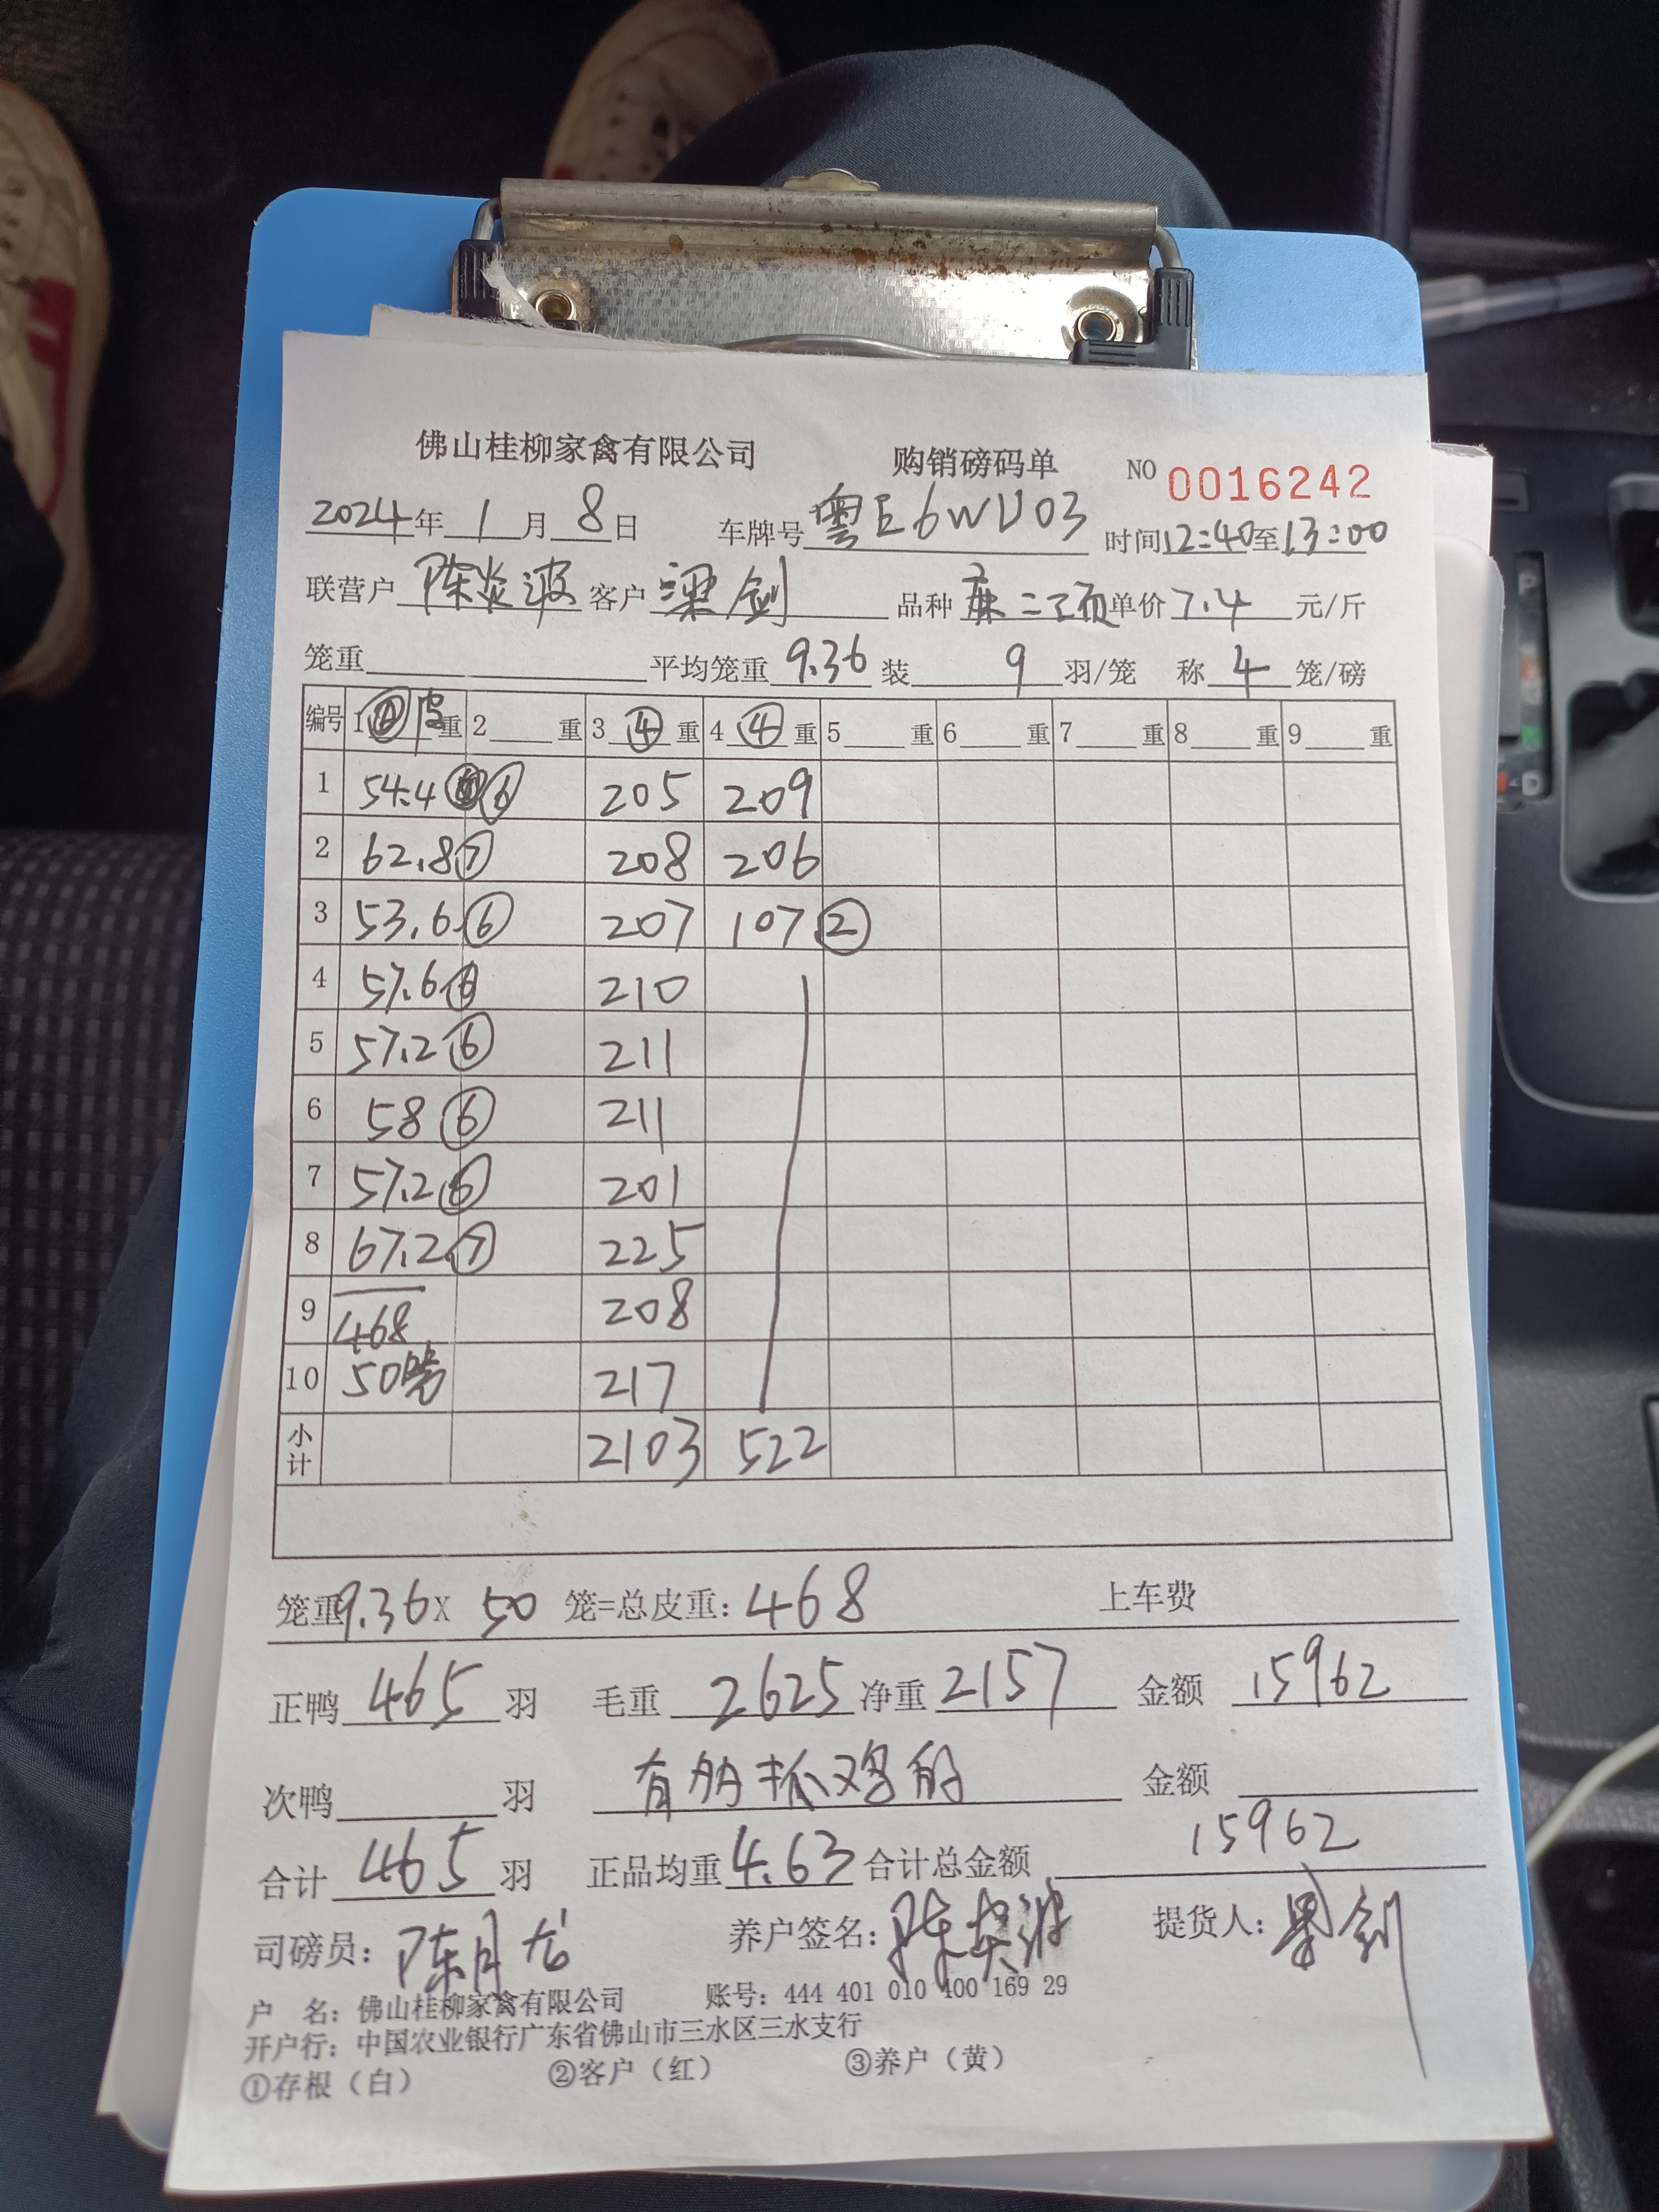 佛山桂柳家禽有限公司 购销磅码单 NO 0016242
2024年1月8日 车牌号粤E6WU03 时间12:40至13:00
联营户陈炎波 客户梁剑 品种麻二项 单价7.4元/斤
笼重 平均笼重9.36 装9羽/笼 称4笼/磅
编号 1④皮重 2重 3④重 4④重 5重 6重 7重 8重 9重
1 54.4 ⑥ 205 209
2 62.8 ⑦ 208 206
3 53.6 ⑥ 207 107 ②
4 57.6 ⑥ 210
5 57.2 ⑥ 211
6 58 ⑥ 211
7 57.2 ⑥ 201
8 67.2 ⑦ 225
9 468 208
10 50 217
小计 2103 522
笼重9.36X50笼=总皮重:468 上车费
正鸭465羽 毛重2625 净重2157 金额15962
次鸭羽 有的抓鸡的 金额
合计465羽 正品均重4.63 合计总金额15962
司磅员:陈月 养户签名:陈炎波 提货人:梁剑
户 名:佛山桂柳家禽有限公司 账号:444 401 010 400 169 29
开户行:中国农业银行广东省佛山市三水区三水支行
①存根(白) ②客户(红) ③养户(黄)
P
D